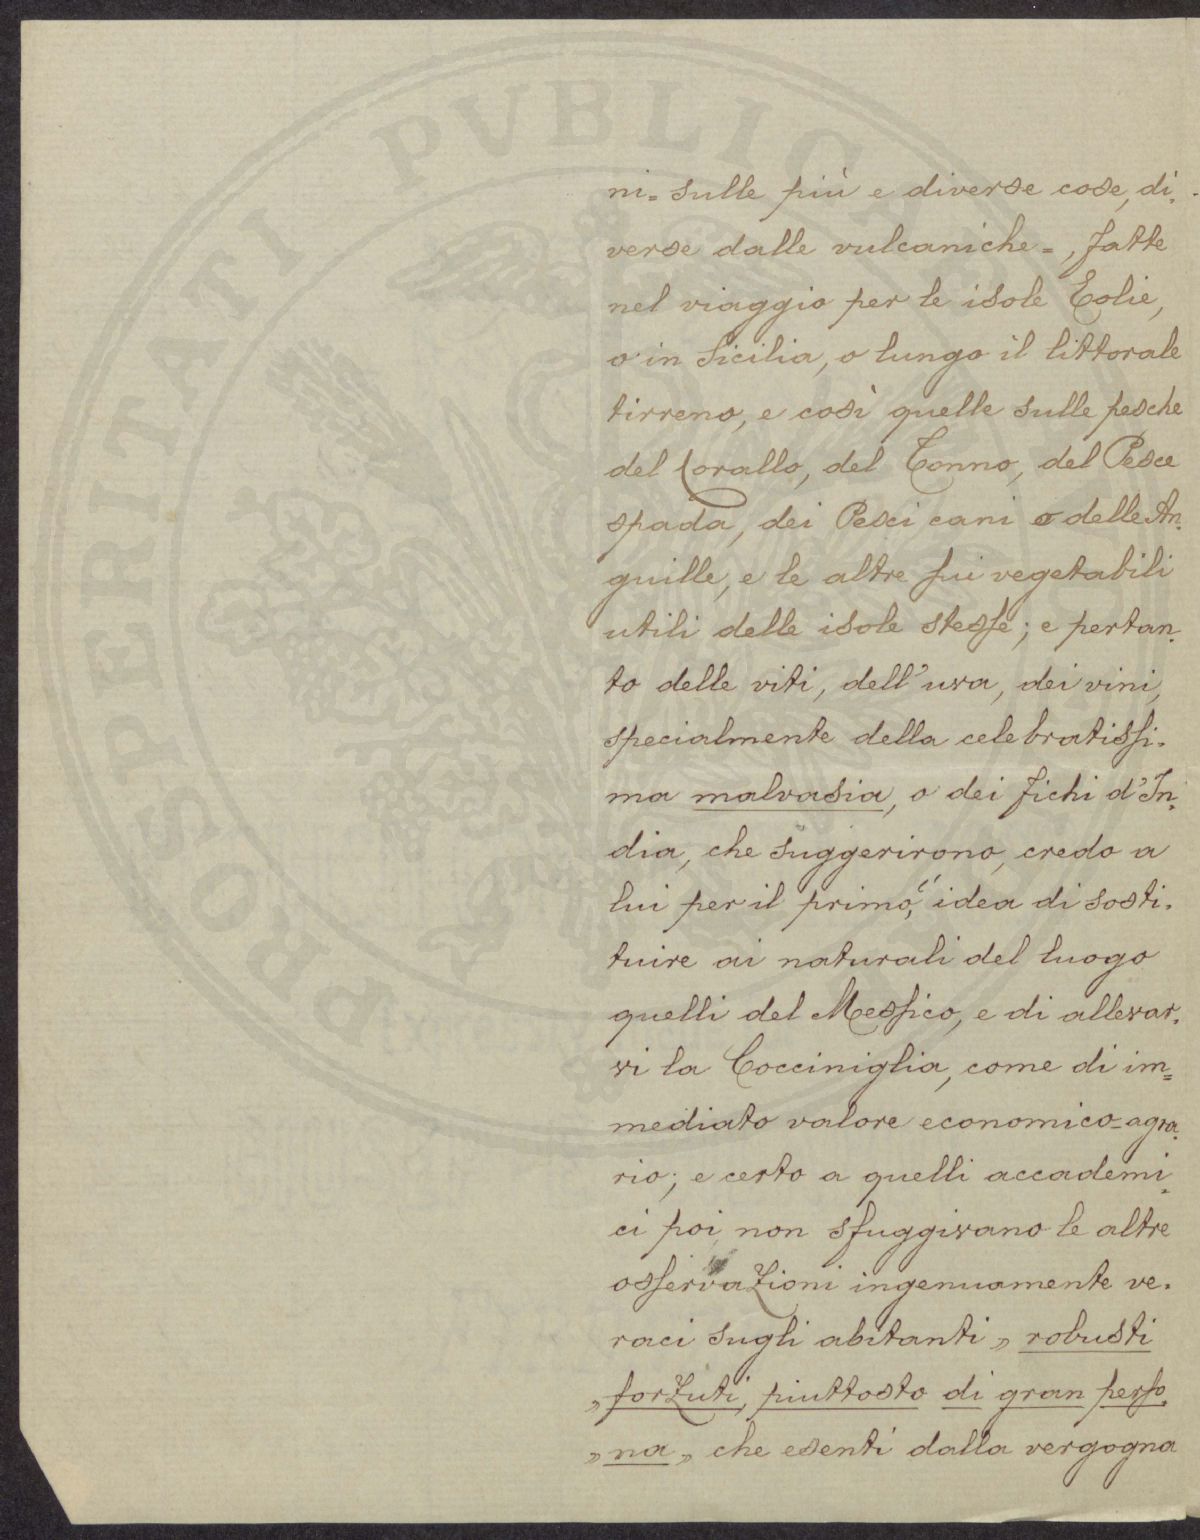 PROSPERITATI PVBLICAE
ni= sulle più e diverse cose, di=
verse dalle vulcaniche=, fatte
nel viaggio per le isole Eolie,
o in Sicilia, o lungo il littorale
tirreno, e così quelle sulle pesche
del Corallo, del Tonno, del Pesce
spada, dei Pesci cani o delle An=
guille, e le altre sui vegetabili
utili delle isole stesse; e pertan=
to delle viti, dell'uva, dei vini,
specialmente della celebratissi=
ma malvasia, o dei fichi d'In=
dia, che suggerirono, credo a
lui per il primo, l'idea di sosti=
tuire ai naturali del luogo
quelli del Messico, e di allevar=
vi la Cocciniglia, come di im=
mediato valore economico-agra=
rio; e certo a quelli accademi=
ci poi non sfuggivano le altre
osservazioni ingenuamente ve=
raci sugli abitanti » robusti
» forzuti, piuttosto di gran perso=
» na » che esenti dalla vergogna